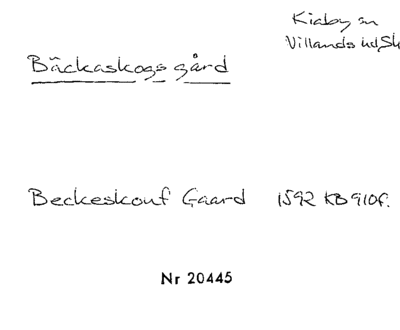 Kiaby sn
Villands hd, Sk
Bäckaskogs gård
Beckeskouf Gaard 1592 KB 910f.
Nr 20445